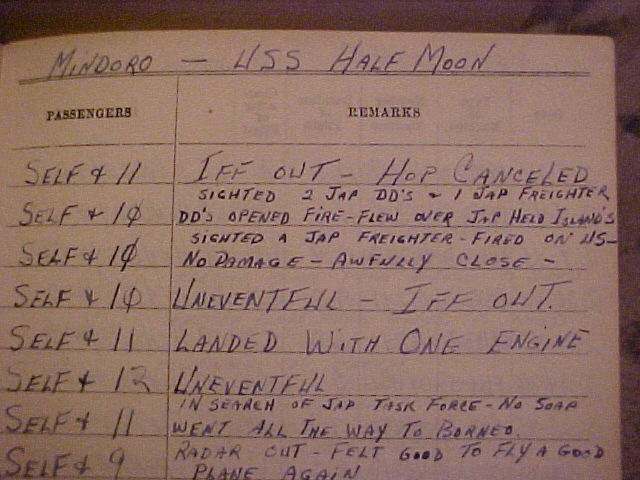 MINDORO — USS HALF MOON
PASSENGERS REMARKS
SELF & 11 IFF OUT - HOP CANCELED
SIGHTED 2 JAP DD'S & 1 JAP FREIGHTER
SELF & 10 DD'S OPENED FIRE - FLEW OVER JAP HELD ISLAND'S
SIGHTED A JAP FREIGHTER - FIRED ON US -
SELF & 10 NO DAMAGE - AWFULLY CLOSE -
SELF & 10 UNEVENTFUL - IFF OUT.
SELF & 11 LANDED WITH ONE ENGINE
SELF & 12 UNEVENTFUL
IN SEARCH OF JAP TASK FORCE - NO SOAP
SELF & 11 WENT ALL THE WAY TO BORNEO.
RADAR OUT - FELT GOOD TO FLY A GOOD
SELF & 9 PLANE AGAIN